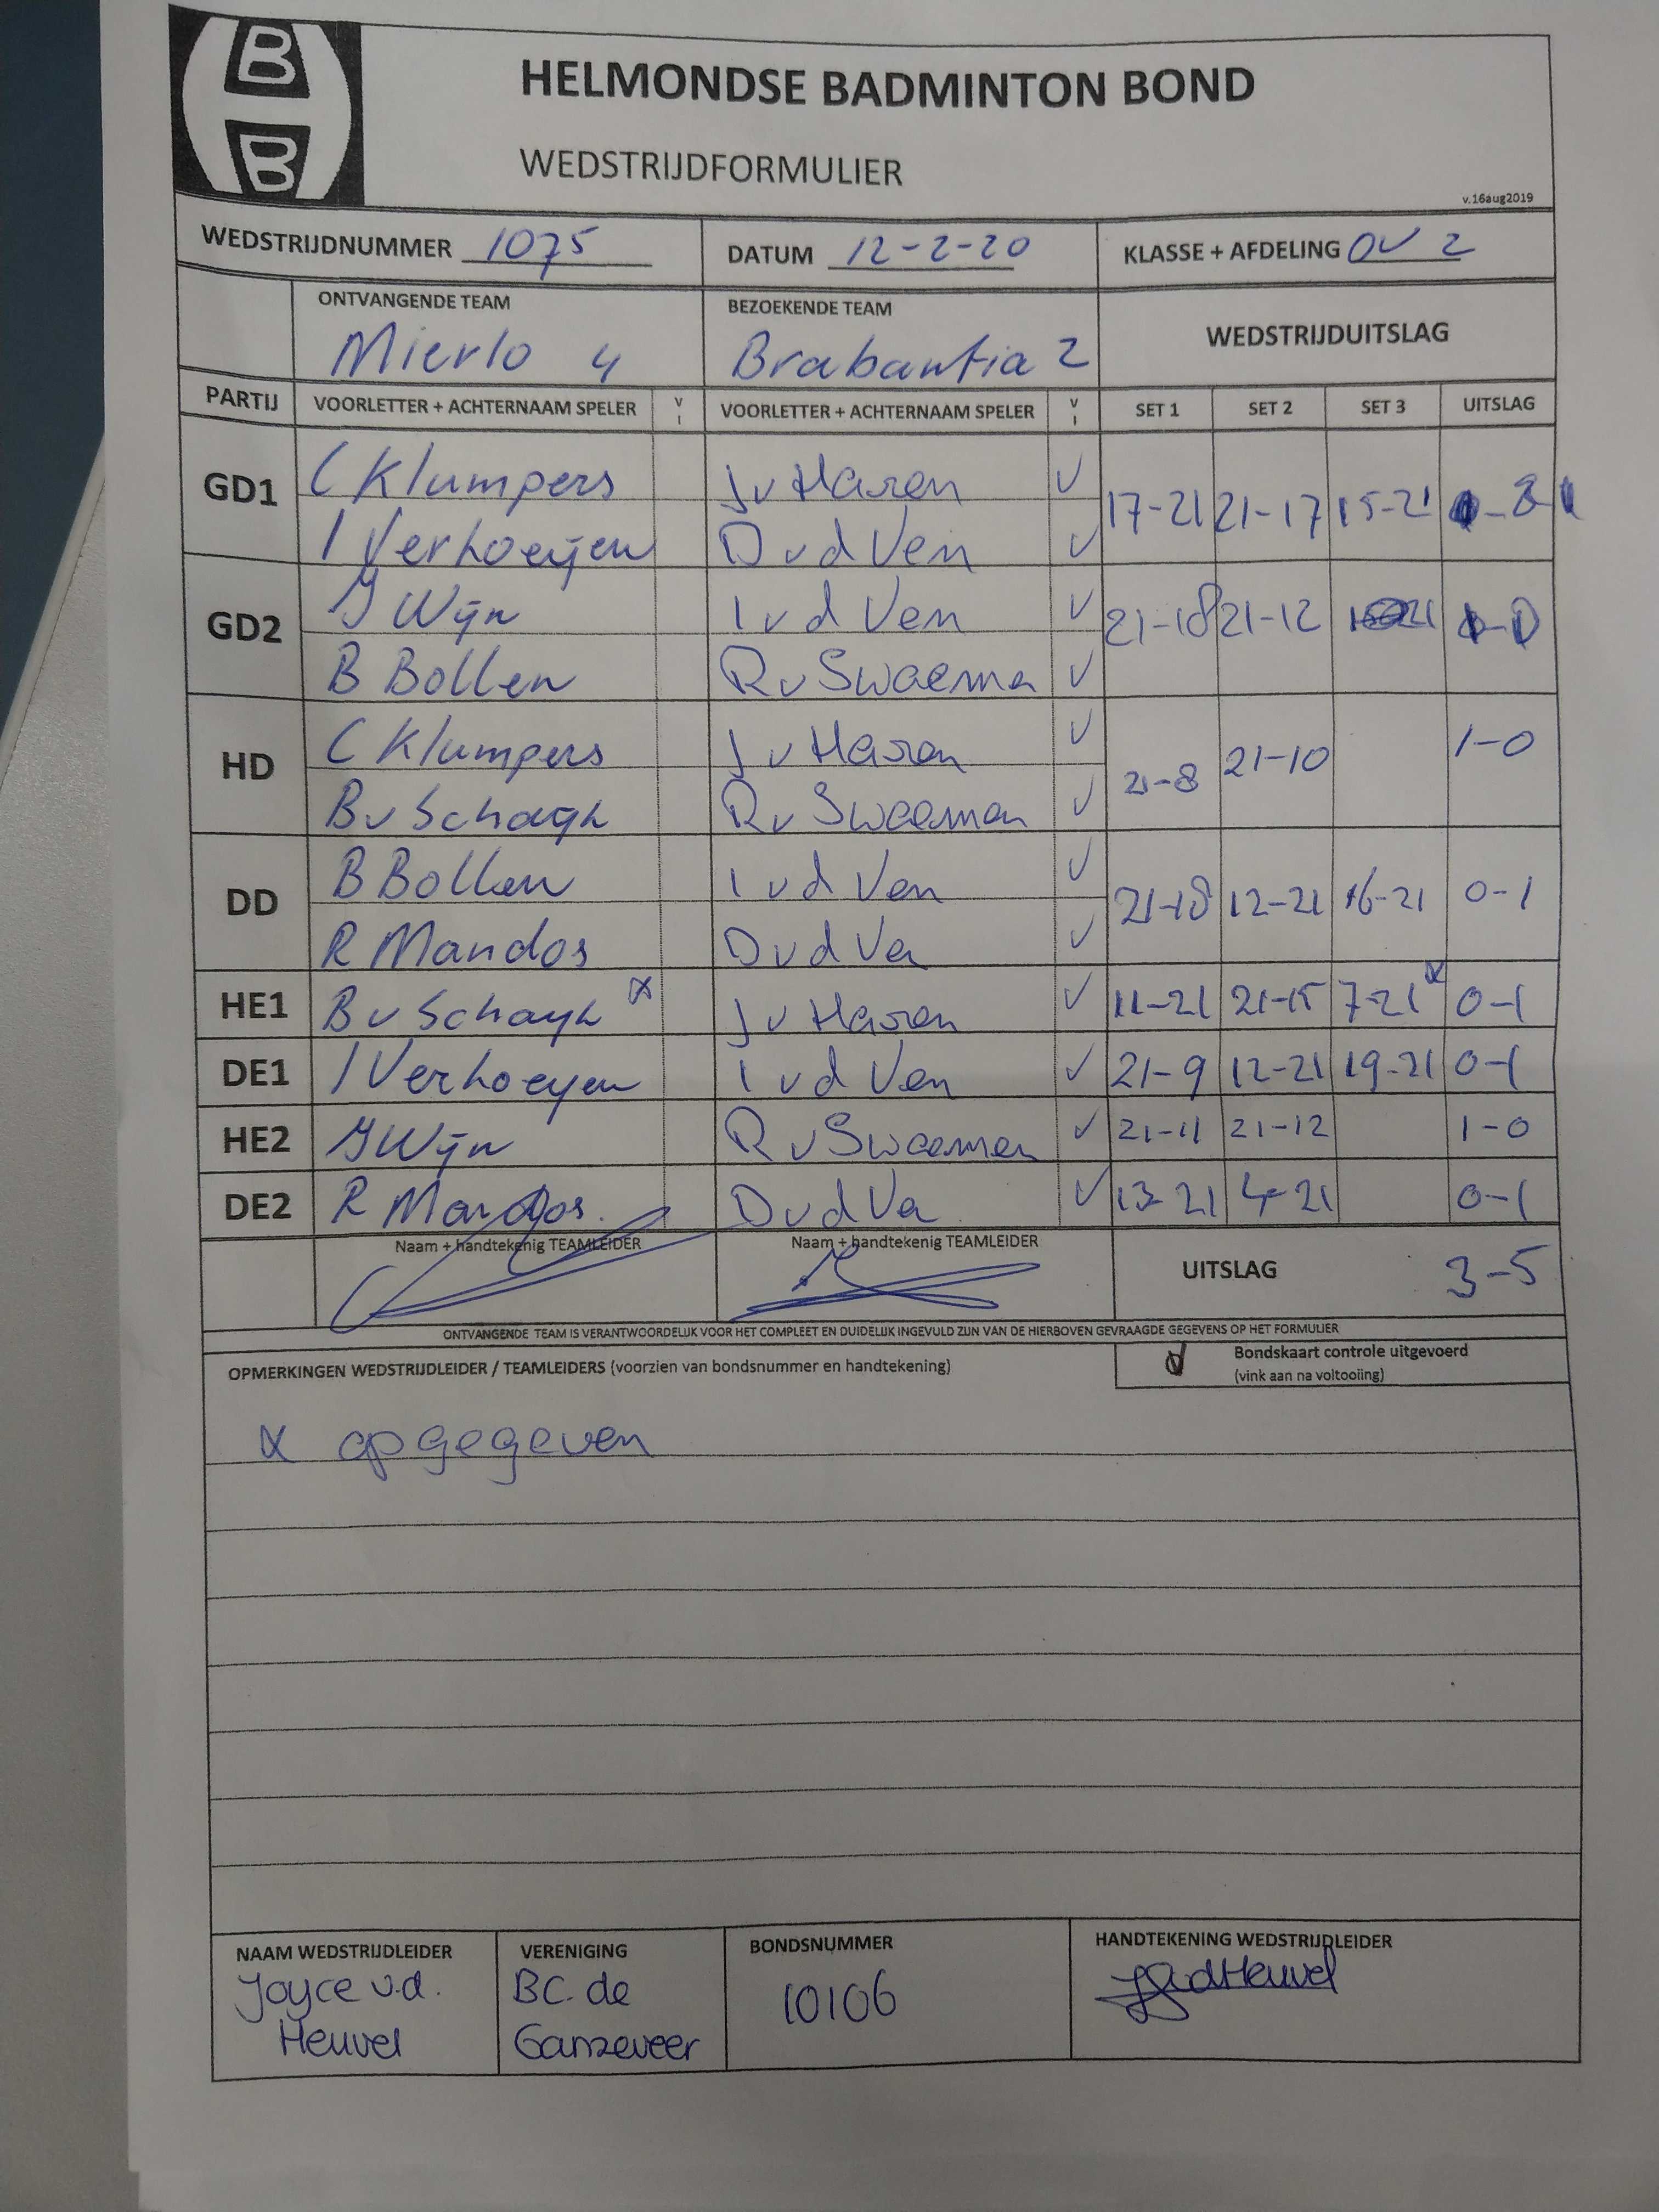 B
B
HELMONDSE BADMINTON BOND
WEDSTRIJDFORMULIER
v.16aug2019
WEDSTRIJDNUMMER 1075 DATUM 12-2-20 KLASSE + AFDELING OV 2
ONTVANGENDE TEAM BEZOEKENDE TEAM WEDSTRIJDUITSLAG
Mierlo 4 Brabantia 2
PARTIJ VOORLETTER + ACHTERNAAM SPELER V I VOORLETTER + ACHTERNAAM SPELER V I SET 1 SET 2 SET 3 UITSLAG
GD1 C Klumpers J v Haren V 17-21 21-17 15-21
I Verhoeyen D v d Ven V
GD2 J Wijn I v d Ven V 21-18 21-12
B Bollen R v Swaema V
HD C Klumpers J v Haren V 21-8 21-10 1-0
B v Schayk R v Swaemen V
DD B Bollen I v d Ven V 21-18 12-21 16-21 0-1
R Mandos D v d Ve V
HE1 B v Schayk x J v Haren V 11-21 21-15 7-21 x 0-1
DE1 I Verhoeyen I v d Ven V 21-9 12-21 19-21 0-1
HE2 J Wijn R v Swaemen V 21-11 21-12 1-0
DE2 R Mandos. D v d Ve V 13-21 4-21 0-1
Naam + handtekenig TEAMLEIDER Naam + handtekenig TEAMLEIDER UITSLAG 3-5
ONTVANGENDE TEAM IS VERANTWOORDELIJK VOOR HET COMPLEET EN DUIDELIJK INGEVULD ZIJN VAN DE HIERBOVEN GEVRAAGDE GEGEVENS OP HET FORMULIER
OPMERKINGEN WEDSTRIJDLEIDER / TEAMLEIDERS (voorzien van bondsnummer en handtekening) V Bondskaart controle uitgevoerd
(vink aan na voltooiing)
x opgegeven
NAAM WEDSTRIJDLEIDER VERENIGING BONDSNUMMER HANDTEKENING WEDSTRIJDLEIDER
Joyce v.d. BC. de 10106 JvdHeuvel
Heuvel Ganzeveer